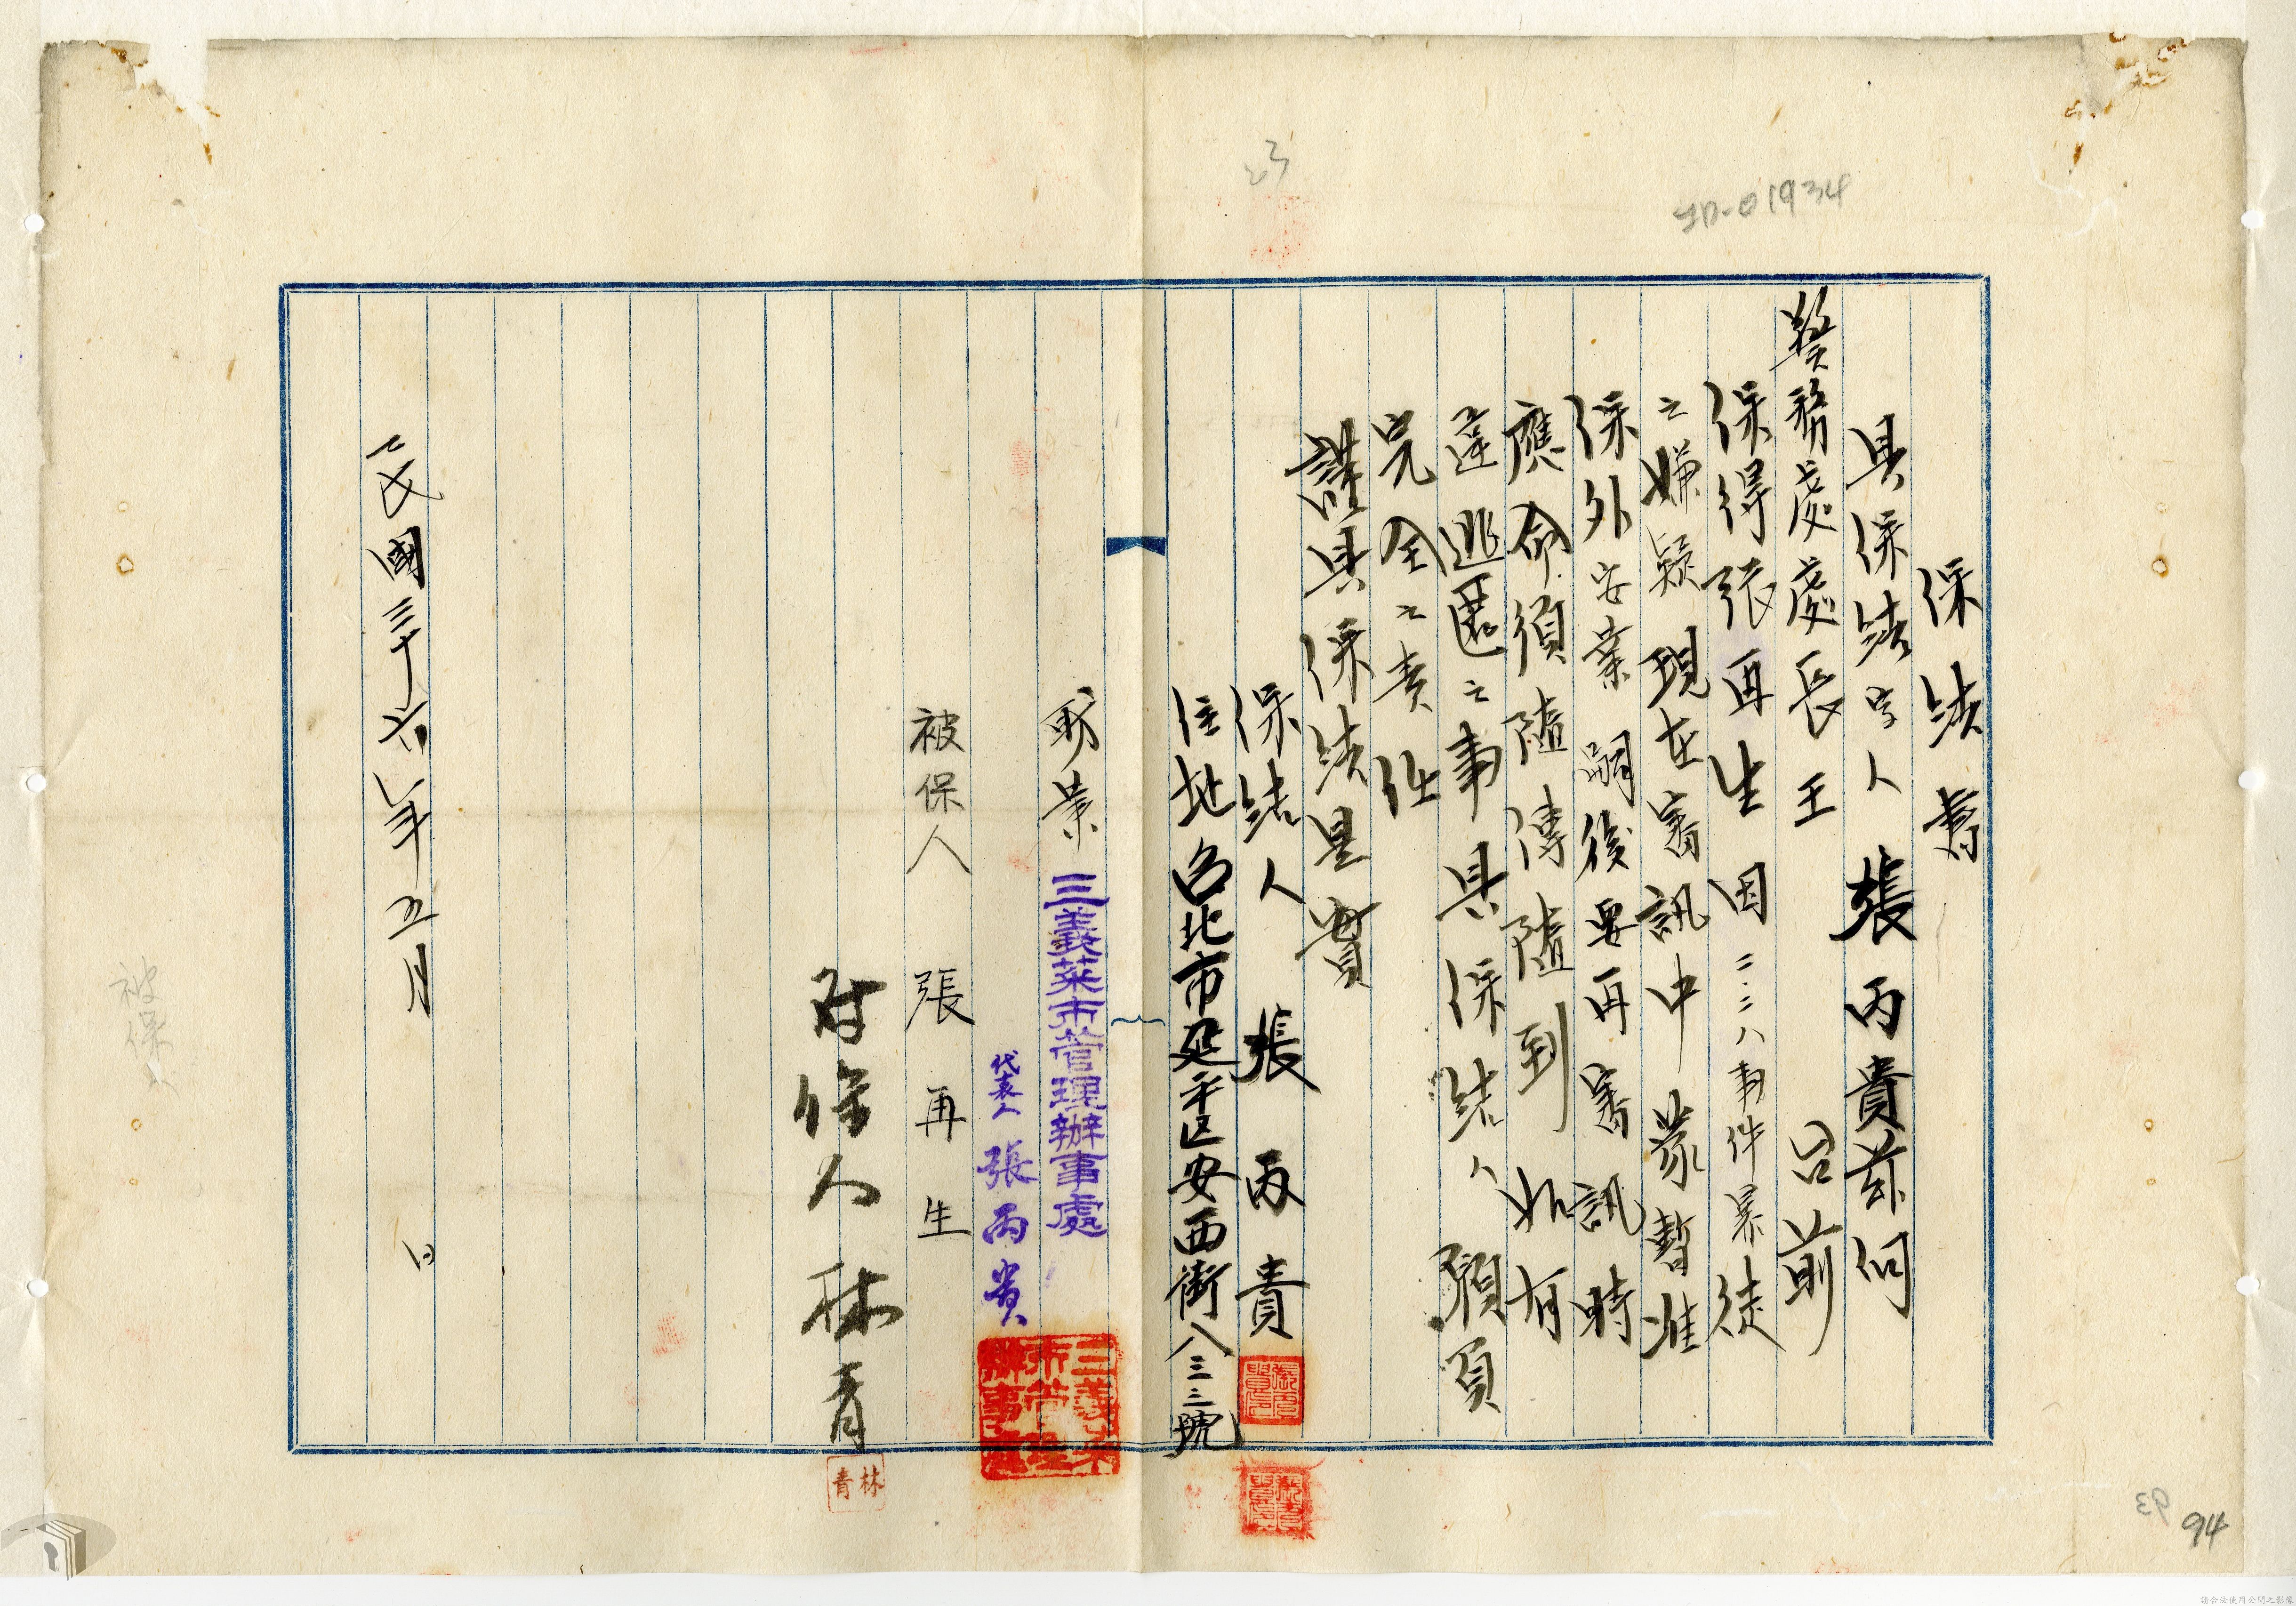 保結書
具保結字人張丙貴茲向
警務處處長王　台前
保得張再生因二.二八事件暴徒
之嫌疑現在審訊中蒙暫准
保外安業嗣後要再審訊時
應命須隨傳隨到如有
違逃匿之事具保結人願負
完全之責任
謹具保結是實
保結人　張丙貴
住地台北市延平区安西街八三二號
職業　三義菜市管理辦事處
代表人　張丙貴
被保人　張再生
對保人　林青
林青
民國三十六年五月　日
被保人
JD-01934
23
93
94
請合法使用公開之影像